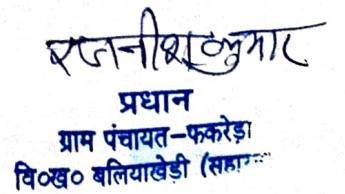 रजनीश कुमार
प्रधान
ग्राम पंचायत-फकरेड़ा
वि०ख० बलियाखेडी (सहा